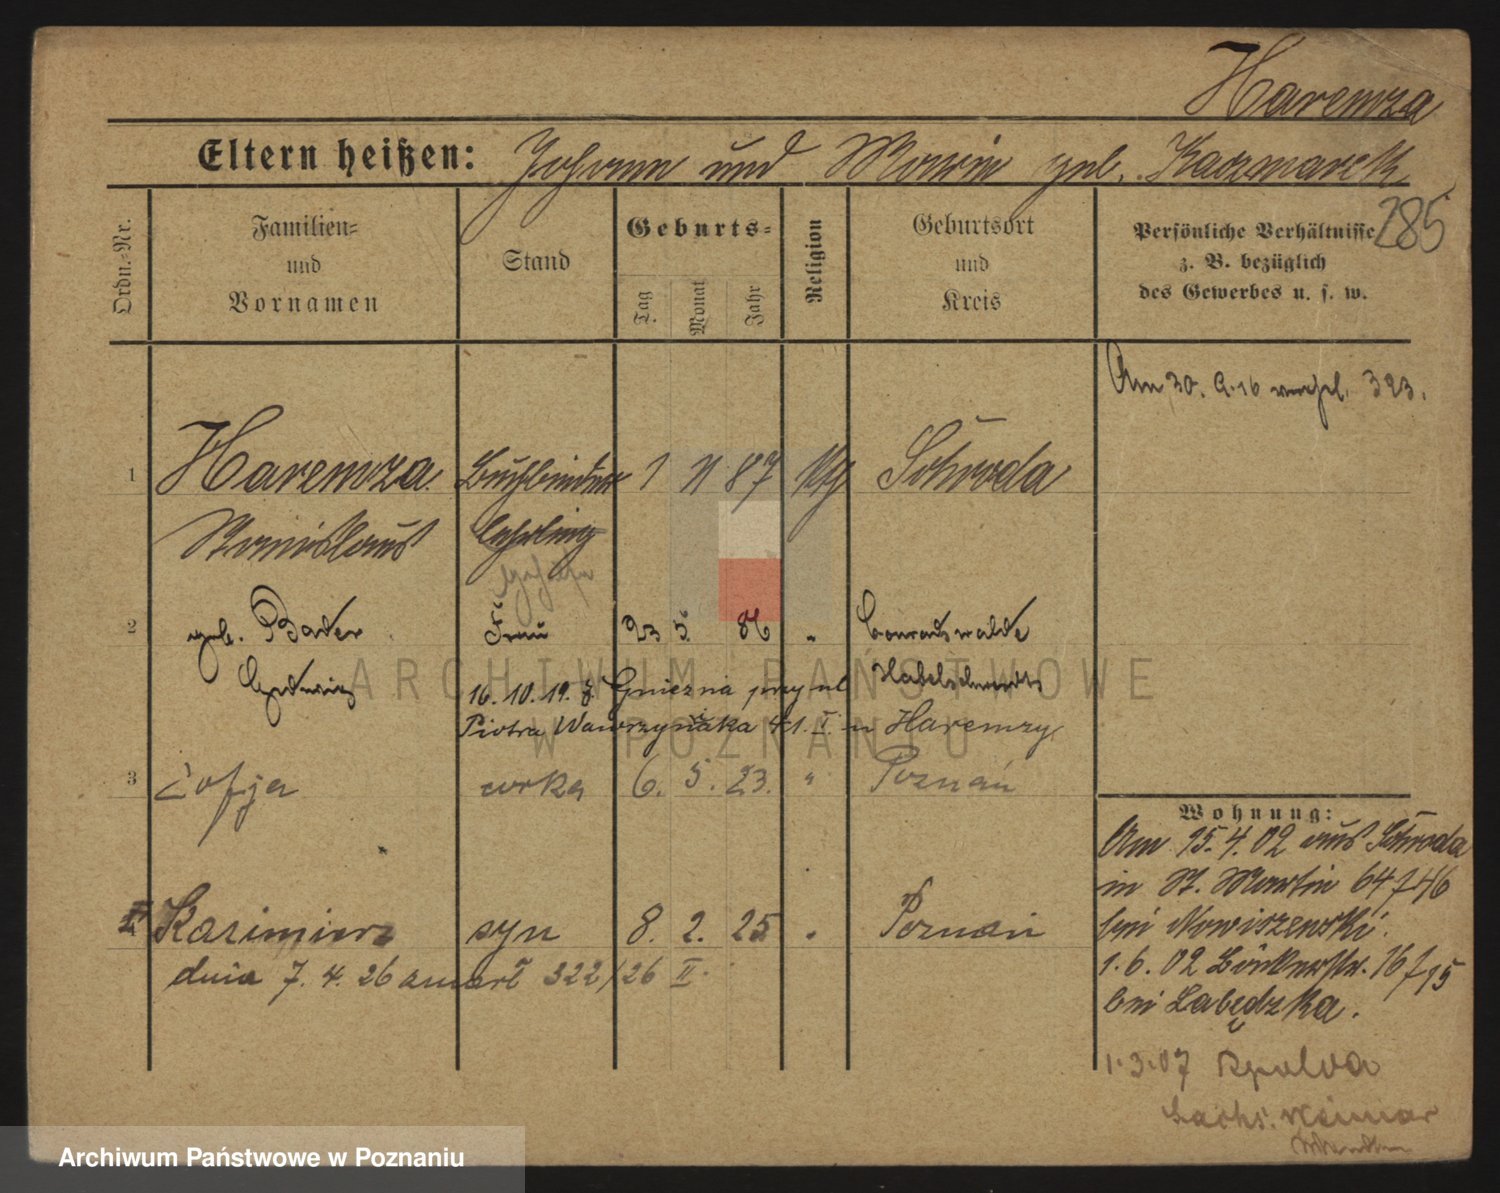 Haremza
Eltern heißen: Johann und Maria geb. Kaczmarek
285
Ordn.-Nr.
Familien-
und
Vornamen
Stand
Geburts-
Tag
Monat
Jahr
Religion
Geburtsort
und
Kreis
Persönliche Verhältnisse
z. B. bezüglich
des Gewerbes u. s. w.
Am 30. 9. 16 verehel. 323.
1 Haremza Buchbinder 1 11 87 kth Schroda
Stanislaus lehrling
2 geb. Bader Frau 23 5. 86 " Conradswalde
Hedwig Habelschwerdt
16. 10. 19. z Gniezna przy ul
Piotra Wawrzyniaka 41. I. u Haremzy
3 Zofja córka 6. 5. 23. " Poznań
4 Kazimierz syn 8. 2. 25 " Poznań
dnia 7. 4. 26 zmarł 322/26 II.
Wohnung:
Am 15. 4. 02 aus Schroda
in St. Martin 64 f 46
bei Nowiszewski.
1. 6. 02 Bäckerstr. 16 f 15
bei Łabędzka.
1. 3. 07 Apolda
Sachs. Weimar
ARCHIWUM PAŃSTWOWE
W POZNANIU
Archiwum Państwowe w Poznaniu